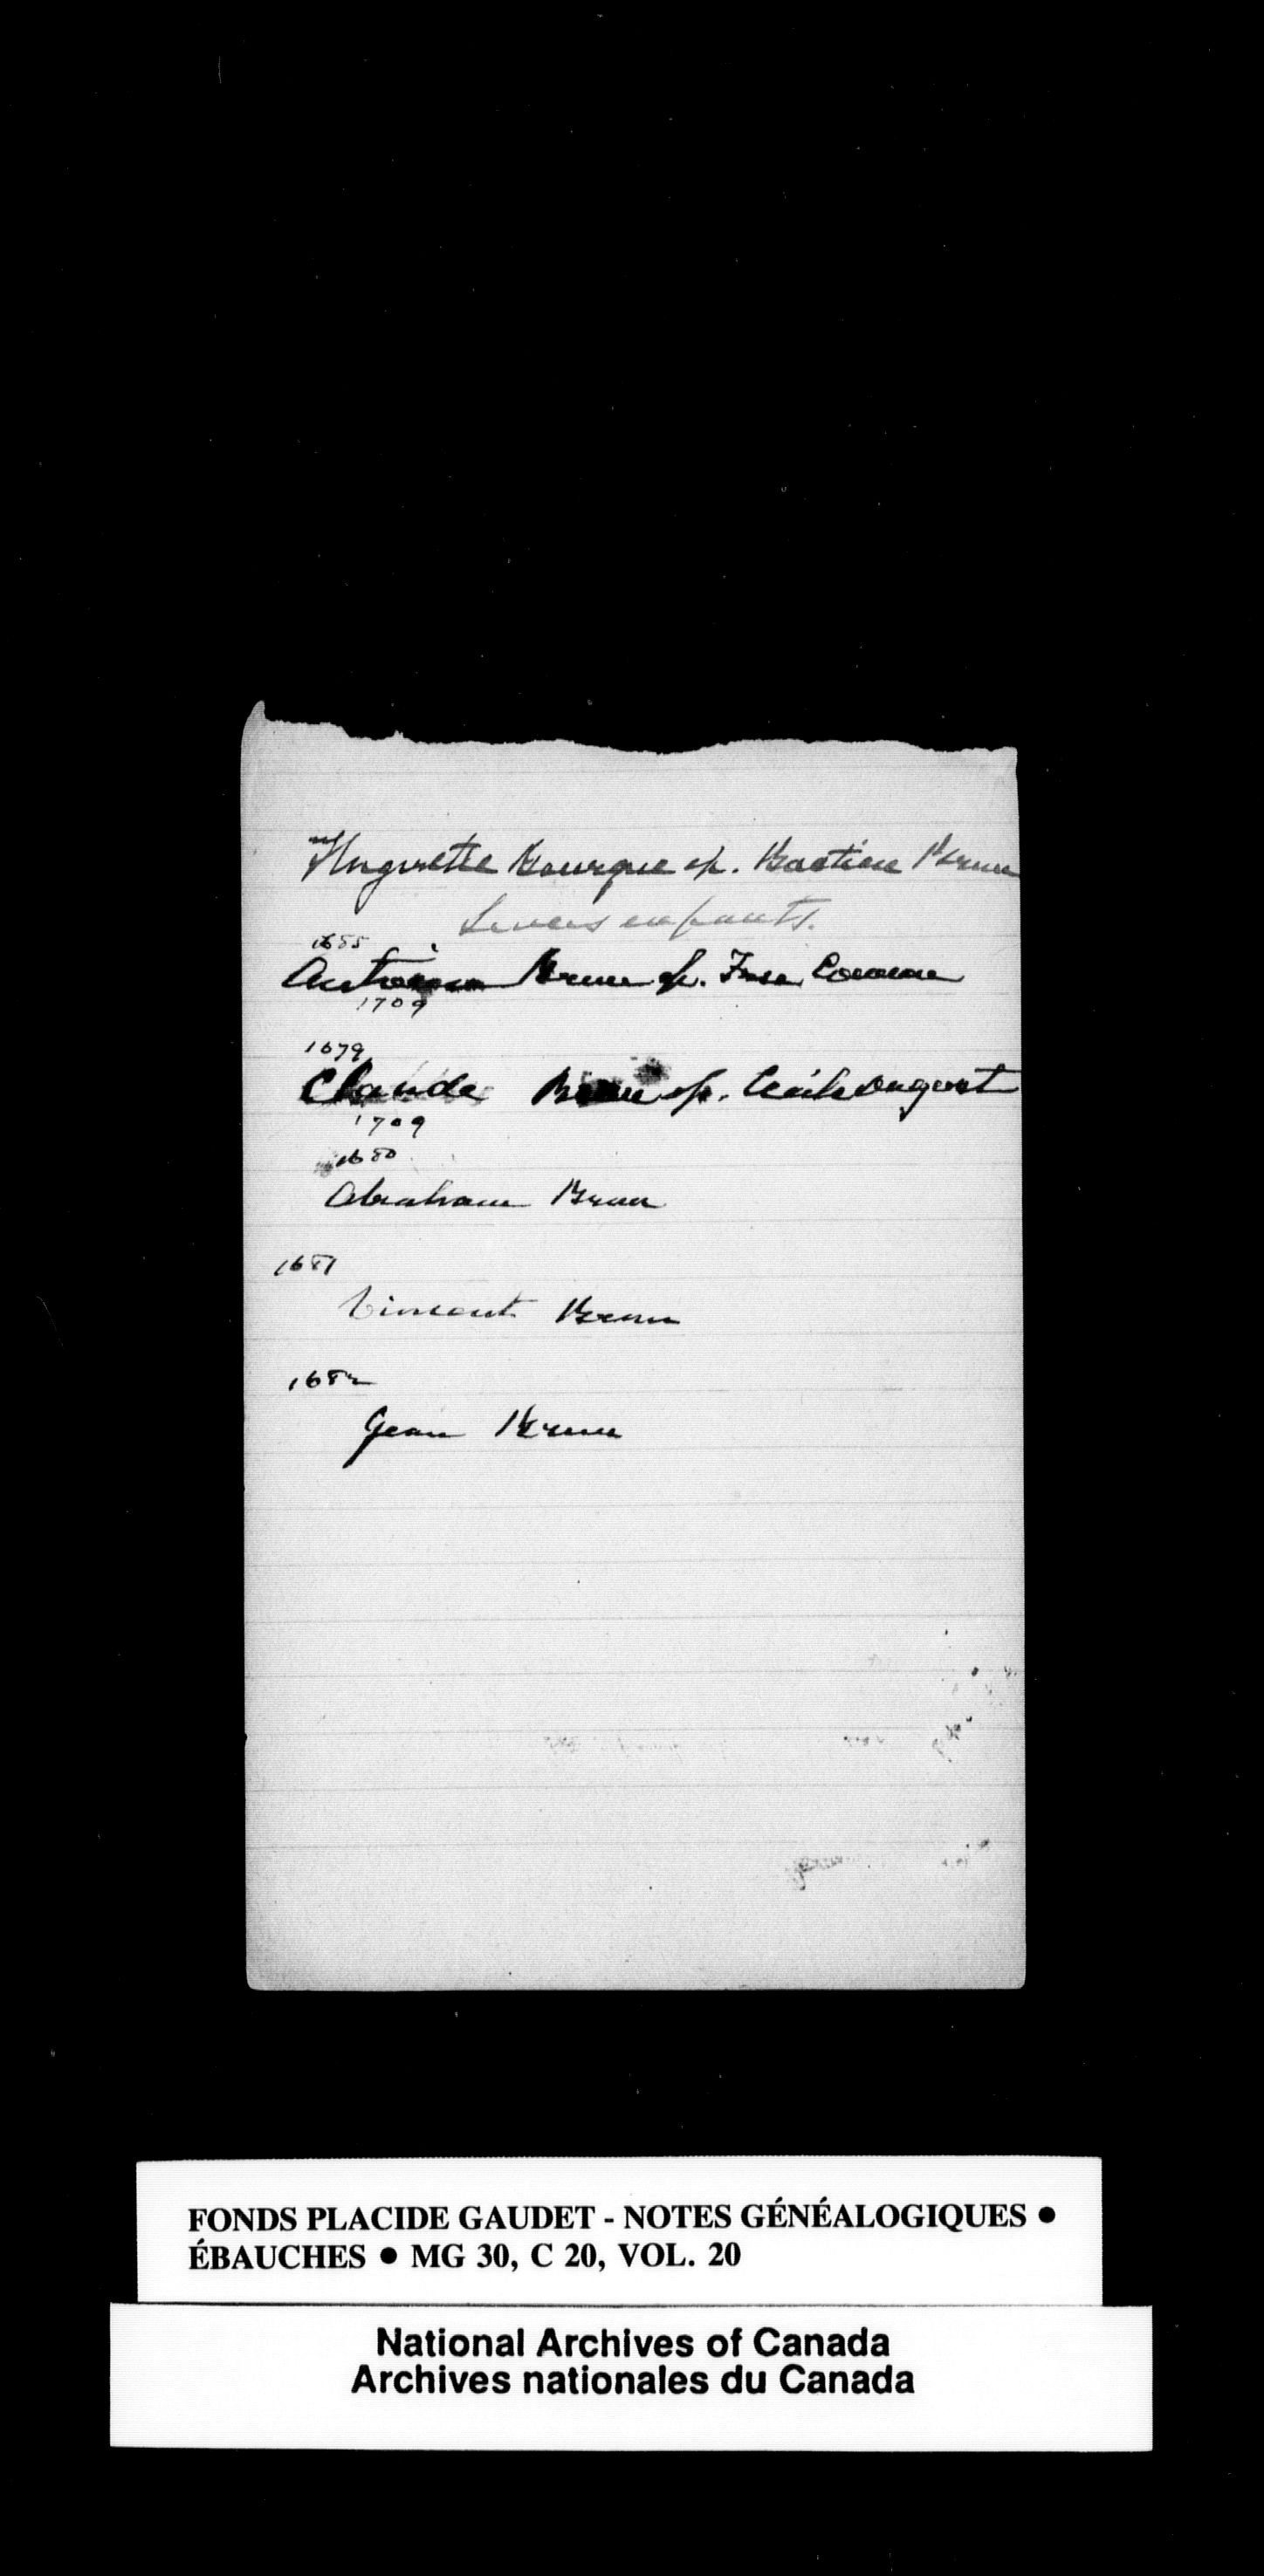 Huguette Bourque sp. Bastien Brun
Leurs enfants.
1685
Antoine Brun sp. Fse Comeau
1709
1679
Claude Brun sp. Cécile Dugast
1709
1680
Abraham Brun
1681
Vincent Brun
1682
Jean Brun
FONDS PLACIDE GAUDET - NOTES GÉNÉALOGIQUES ●
ÉBAUCHES ● MG 30, C 20, VOL. 20
National Archives of Canada
Archives nationales du Canada